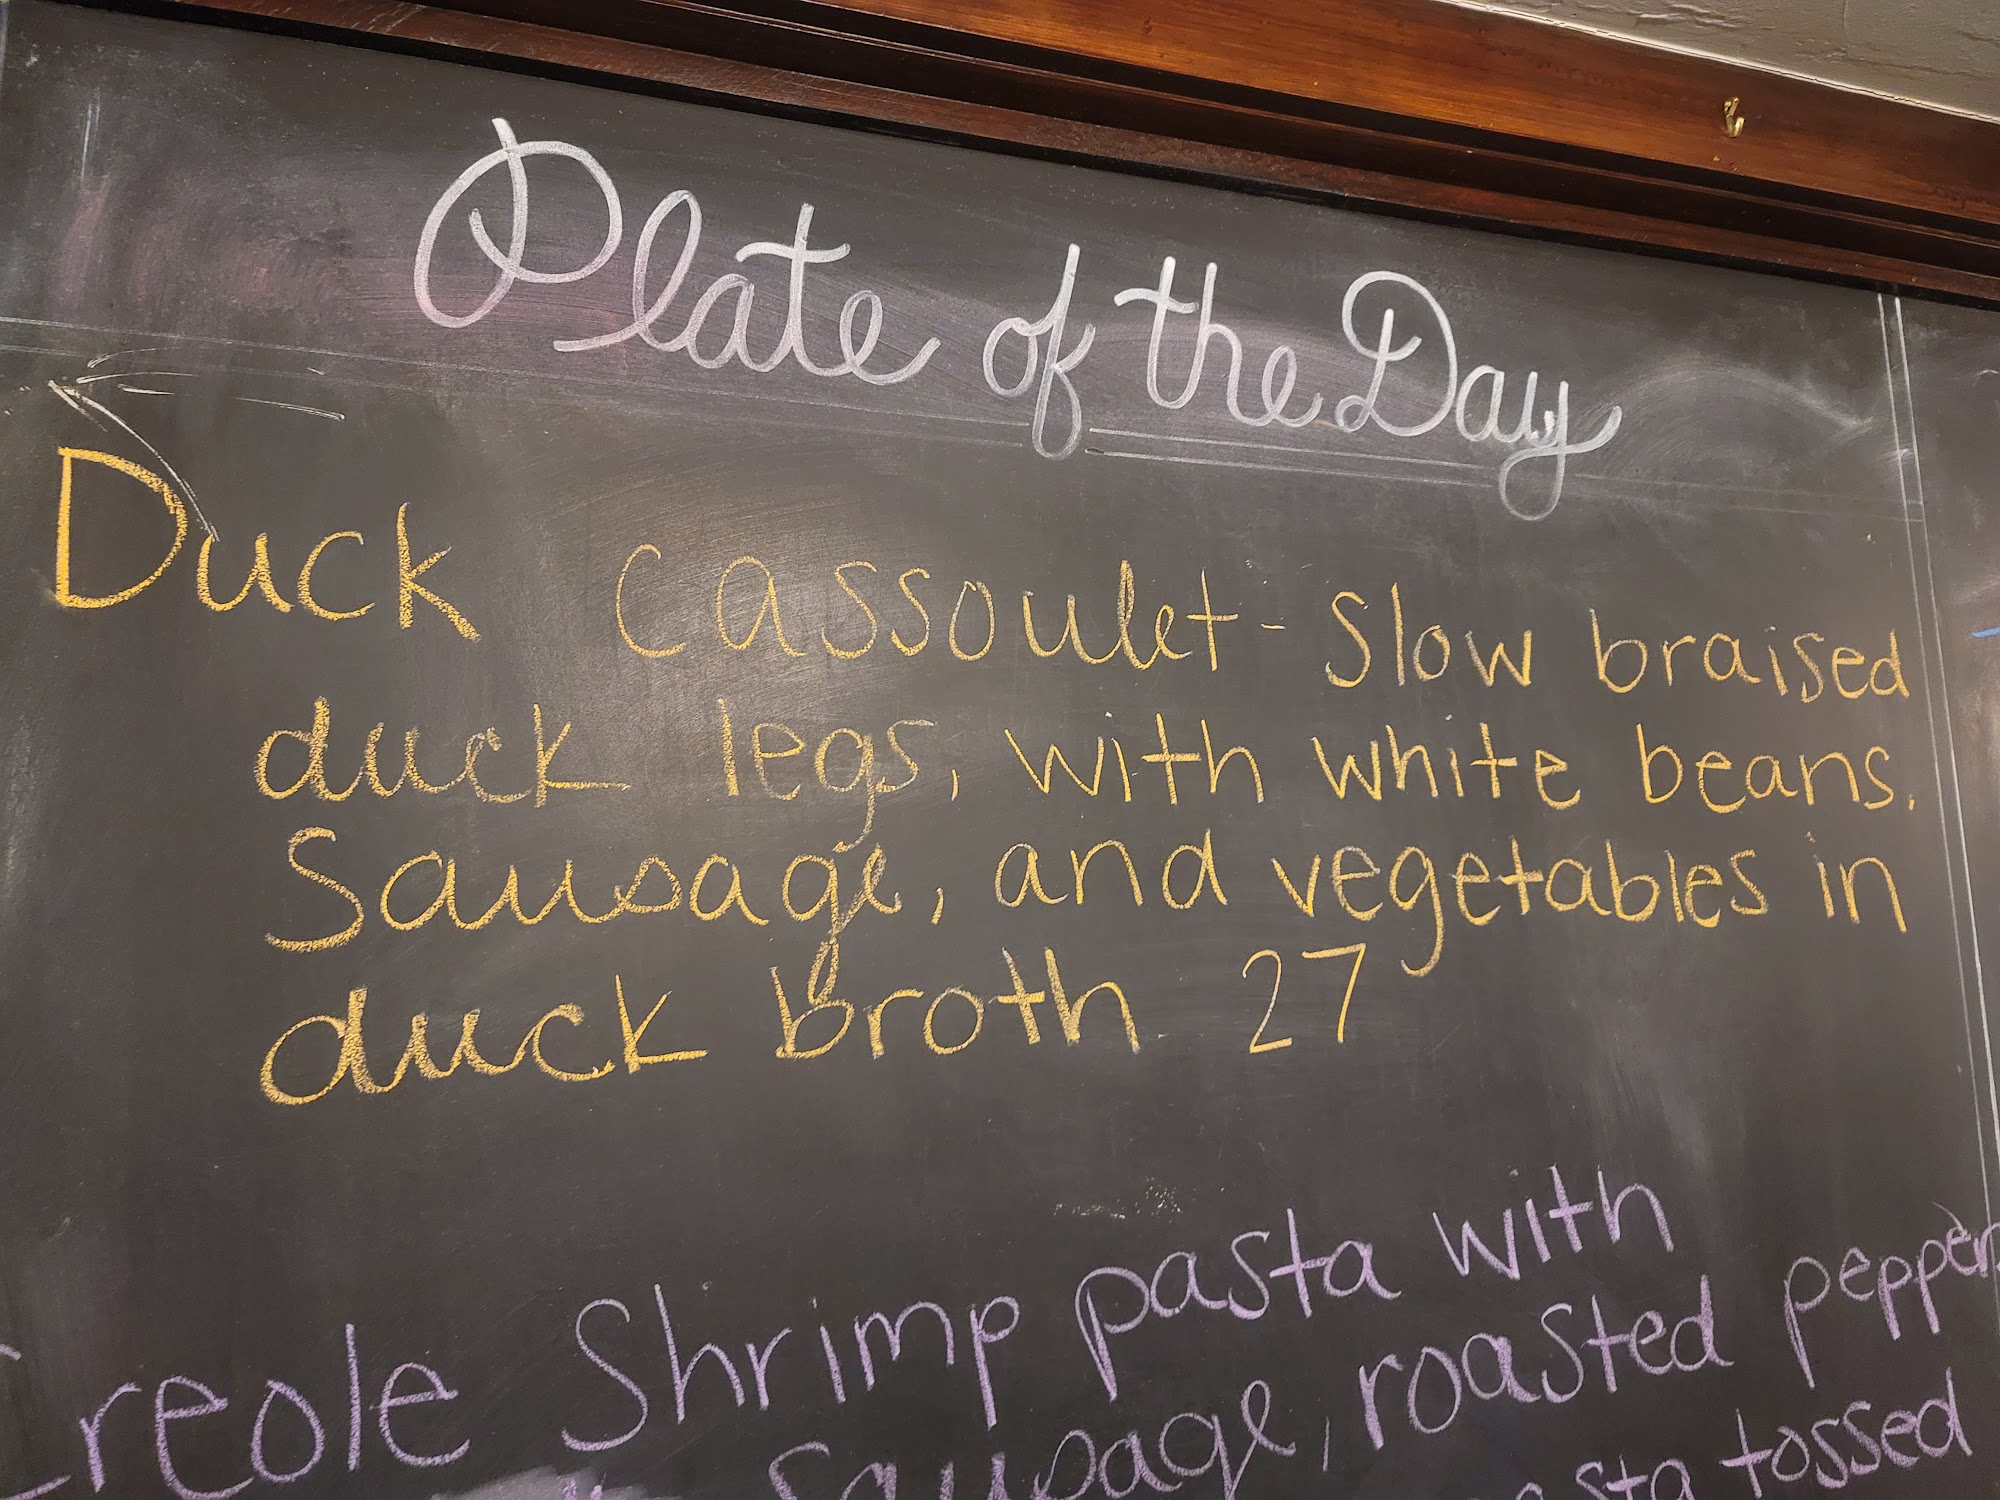 Plate of the Day
Duck Cassoulet - Slow braised
duck legs, with white beans,
Sausage, and vegetables in
duck broth. 27
Creole Shrimp pasta with
Sausage, roasted peppers
tossed